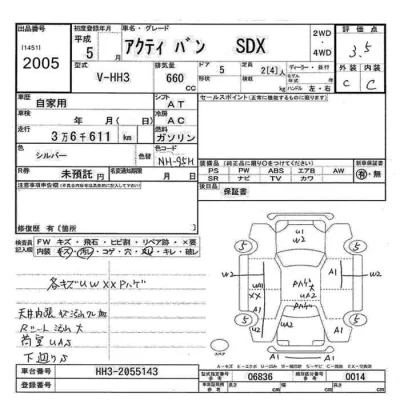 出品番号 初度登録年月 車名・グレード 2WD 評価点
[1451] 平成 アクティ バン SDX ・ 3.5
2005 5 月 4WD
型式 排気量 ドア 定員 ディーラー・並行 外装 内装
V-HH3 660 cc 5 2[4]人 C C
形状 積載 kg モデル年式 年 ハンドル 左・右
車歴 自家用 シフト AT セールスポイント(正常に機能するものに限ります)
車検 年 月 冷房 AC
走行 3万6千611 km 燃料 ガソリン
色 シルバー 色替 色コード NH-95H
装備品(純正品に限り○をつけてください) 新車保証書
R券 未預託 円 名変通知期限 月 日 PS PW ABS エアB AW 有・無
SR ナビ TV カワ
注意事項申告欄 後日品 保証書
修復歴 有(箇所
検査員記入欄 FW キズ・飛石・ヒビ割・リペア跡・×要
内装 キズ・汚・コゲ・穴・丸・キレ・破レ
各キズUW XX Pハゲ
天井内張
大
荷室 UAS
下廻りS
U1 W2
5 5 5 5
W2 U2 A1 A1 A1 A1
UA1 XX Pハゲ 大 UA2
スペア
車台番号 HH3-2055143 型式指定番号 06836 類別区分番号 0014
登録番号 長さ cm 幅 cm 高さ cm